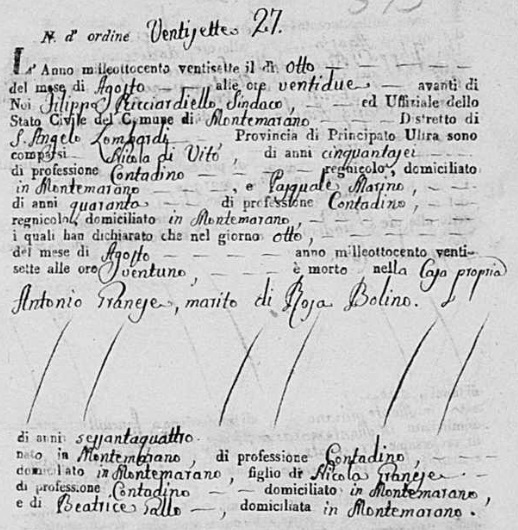 N. d' ordine Ventisette 27.
L' Anno milleottocento ventisette il dì otto
del mese di Agosto alle ore ventidue avanti di
Noi Filippo Ricciardiello, Sindaco, ed Uffiziale dello
Stato Civile del Comune di Montemarano Distretto di
S. Angelo Lombardi Provincia di Principato Ultra sono
comparsi Nicola di Vito, di anni cinquantasei
di professione Contadino regnicolo, domiciliato
in Montemarano, e Pasquale Marino,
di anni quaranta di professione Contadino,
regnicolo, domiciliato in Montemarano,
i quali han dichiarato che nel giorno otto,
del mese di Agosto anno milleottocento venti-
sette alle ore ventuno, è morto nella Casa propria
Antonio Granese, marito di Rosa Bolino.
di anni sessantaquattro.
nato in Montemarano, di professione Contadino,
domiciliato in Montemarano, figlio di Nicola Granese
di professione Contadino domiciliato in Montemarano,
e di Beatrice Gallo, domiciliata in Montemarano.